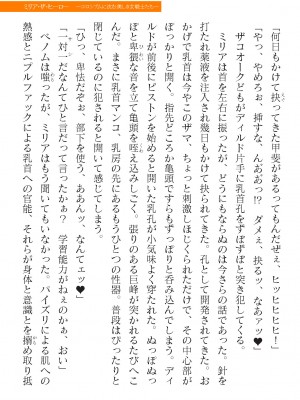 「何日もかけて抉ってきた甲斐があるってもんだぜぇ、ヒッヒヒヒヒ！」
「やっ、やめろぉ、挿すな、んああっっ!?　ダメぇ、抉るッ、なあァッ♥」
ザコオークどもがディルド片手に乳首孔をずぼずぼと突き犯してくる。
ミリアは首を左右に振ったが、どうにもならぬのは今さらの話であった。針を
打たれ薬液を注入され幾日もかけて抉られてきた。孔として開発されてきた。お
かげで乳首は今やこのザマ、ちょっと刺激しほじくられただけで、その中心部が
ぽっかりと開く。指先どころか亀頭ですらもずっぽりと呑み込んでしまう。ディ
ルドが前後にピストンを始めると開いた乳孔が気味よく穿たれた。ぬっぽぬっっ
ぽと卑猥な音を立て亀頭を咥え込みしごく。張りのある巨峰が突かれるたびへこ
んだ。まさに乳首マンコ、乳房の先にあるもうひとつの性器。普段はぴったりと
閉じているのに犯されると開いて感じてしまう。
「ひっ、卑怯だぞぉ、部下を使う、ああんッ、なんてェッ♥」
「一対一だなんてひと言だって言ったかぁ？　学習能力がねぇのかぁ、おい」
ベノムは嗤ったが、ミリアはもう聞いてもいなかった。パイズリによる肌への
熱感とニプルファックによる乳首への官能、それらが身体と意識とを搦め取り抵